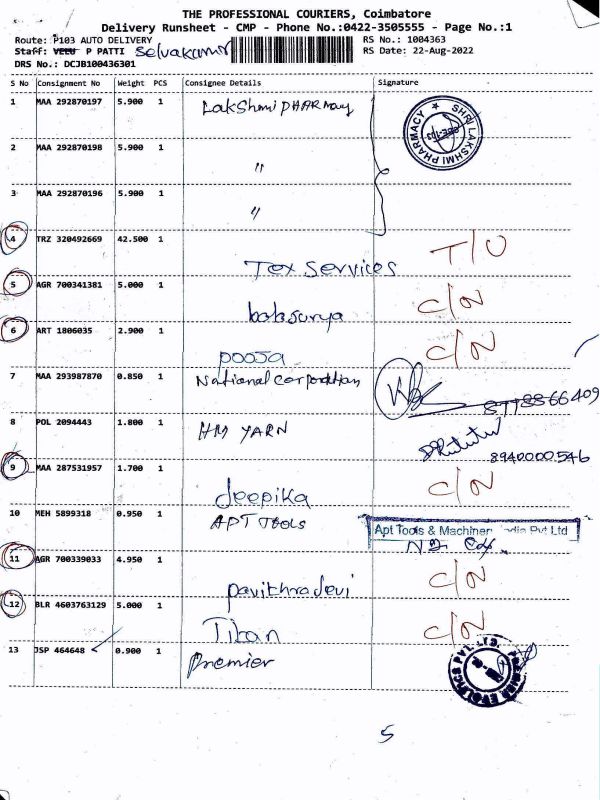 THE PROFESSIONAL COURIERS, Coimbatore
Delivery Runsheet - CMP - Phone No.:0422-3505555 - Page No.:1
Route: P103 AUTO DELIVERY RS No.: 1004363
Staff: VELU P PATTI Selvakumar RS Date: 22-Aug-2022
DRS No.: DCJB100436301
S No Consignment No Weight PCS Consignee Details Signature
1 MAA 292870197 5.900 1 Lakshmi PHARMacy
SHRI LAKSHMI PHARMACY ★
2 MAA 292870198 5.900 1 "
3 MAA 292870196 5.900 1 "
4 TRZ 320492669 42.500 1 Tex Services T/O
5 AGR 700341381 5.000 1 balasurya C/N
6 ART 1806035 2.900 1 pooja C/N
7 MAA 293987870 0.850 1 National corporation
8 POL 2094443 1.800 1 HM YARN
8940000546
9 MAA 287531957 1.700 1 deepika C/N
10 MEH 5899318 0.950 1 APT Tools
Apt Tools & Machinery India Pvt Ltd
11 AGR 700339033 4.950 1 pavithradevi C/N
12 BLR 4603763129 5.000 1 Titan C/N
13 JSP 464648 0.900 1 Premier
5